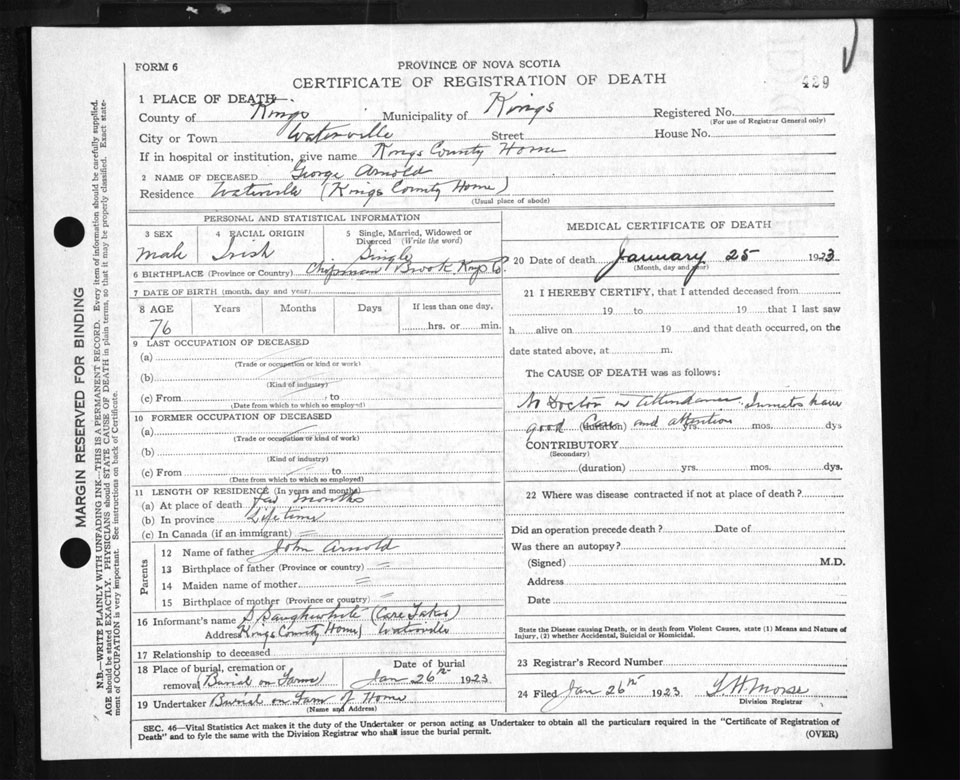 FORM 6
PROVINCE OF NOVA SCOTIA
CERTIFICATE OF REGISTRATION OF DEATH
429
1 PLACE OF DEATH—
County of Kings Municipality of Kings Registered No.
(For use of Registrar General only)
City or Town Waterville Street House No.
If in hospital or institution, give name Kings County Home
2 NAME OF DECEASED George Arnold
Residence Waterville (Kings County Home)
(Usual place of abode)
PERSONAL AND STATISTICAL INFORMATION
3 SEX
Male
4 RACIAL ORIGIN
Irish
5 Single, Married, Widowed or Divorced (Write the word)
Single
6 BIRTHPLACE (Province or County) Chipman Brook Kings Co.
7 DATE OF BIRTH (month, day and year)
8 AGE Years Months Days If less than one day,
76 hrs. or min.
9 LAST OCCUPATION OF DECEASED
(a)
(Trade or occupation or kind of work)
(b)
(Kind of industry)
(c) From to
(Date from which to which so employed)
10 FORMER OCCUPATION OF DECEASED
(a)
(Trade or occupation or kind of work)
(b)
(Kind of industry)
(c) From to
(Date from which to which so employed)
11 LENGTH OF RESIDENCE (In years and months)
(a) At place of death few months
(b) In province Lifetime
(c) In Canada (if an immigrant)
Parents
12 Name of father John Arnold
13 Birthplace of father (Province or country)
14 Maiden name of mother
15 Birthplace of mother (Province or country)
16 Informant's name S (Care Taker)
Address Kings County Home, Waterville
17 Relationship to deceased
18 Place of burial, cremation or removal (Burial on Farm)
Date of burial
Jan 26th 1923
19 Undertaker Burial on Farm of Home
(Name and Address)
MEDICAL CERTIFICATE OF DEATH
20 Date of death January 25 1923
(Month, day and year)
21 I HEREBY CERTIFY, that I attended deceased from
19 to 19 that I last saw
h alive on 19 and that death occurred, on the
date stated above, at m.
The CAUSE OF DEATH was as follows:
No Doctor in attendance. Inmates have
good Care and attention
(duration) yrs. mos. dys
CONTRIBUTORY
(Secondary)
(duration) yrs. mos. dys.
22 Where was disease contracted if not at place of death?
Did an operation precede death? Date of
Was there an autopsy?
(Signed) M.D.
Address
Date
State the Disease causing Death, or in death from Violent Causes, state (1) Means and Nature of
Injury, (2) whether Accidental, Suicidal or Homicidal.
23 Registrar's Record Number
24 Filed Jan 26th 1923 Morse
Division Registrar
SEC. 46—Vital Statistics Act makes it the duty of the Undertaker or person acting as Undertaker to obtain all the particulars required in the "Certificate of Registration of
Death" and to fyle the same with the Division Registrar who shall issue the burial permit.
(OVER)
MARGIN RESERVED FOR BINDING
N.B.—WRITE PLAINLY WITH UNFADING INK—THIS IS A PERMANENT RECORD. Every item of information should be carefully supplied.
AGE should be stated EXACTLY. PHYSICIANS should STATE CAUSE OF DEATH in plain terms, so that it may be properly classified. Exact state-
ment of OCCUPATION is very important. See instructions on back of Certificate.